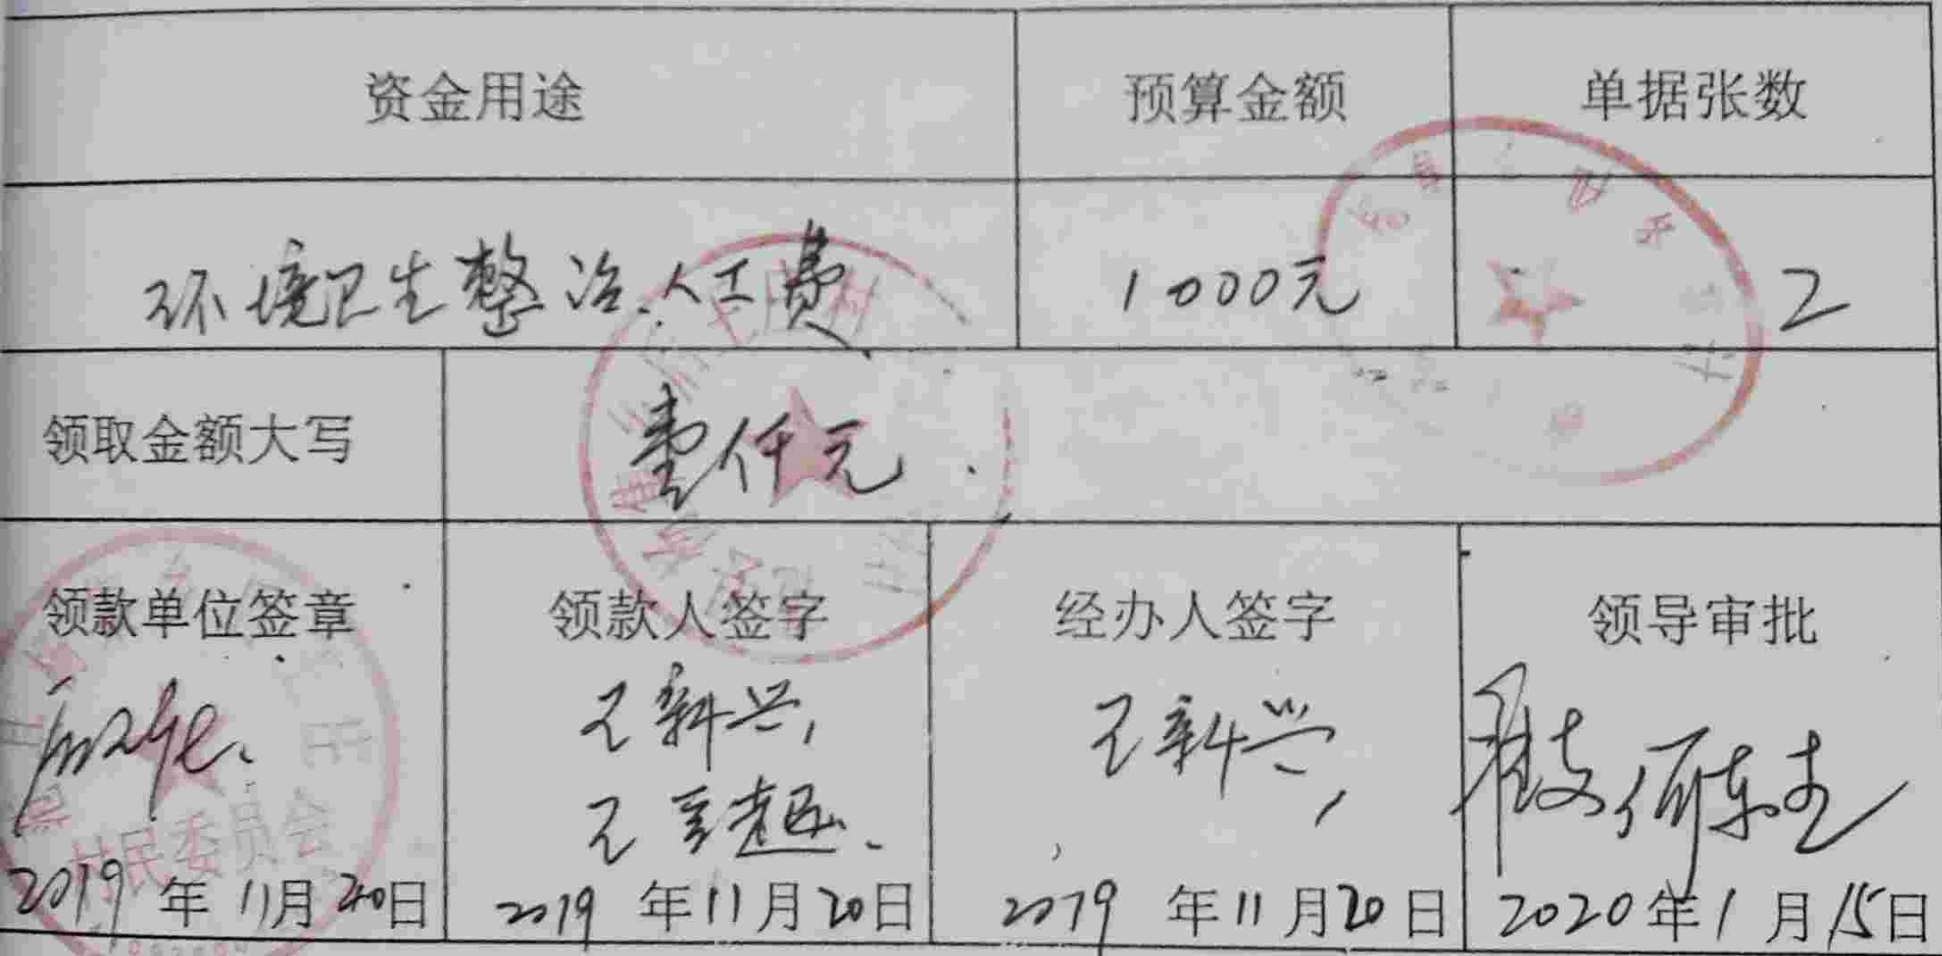 资金用途 预算金额 单据张数
环境卫生整治人工费 1000元 2
领取金额大写 壹仟元
领款单位签章 领款人签字 经办人签字 领导审批
王新兴 王新兴
村民委员会
2019年11月20日 2019年11月20日 2019年11月20日 2020年1月15日